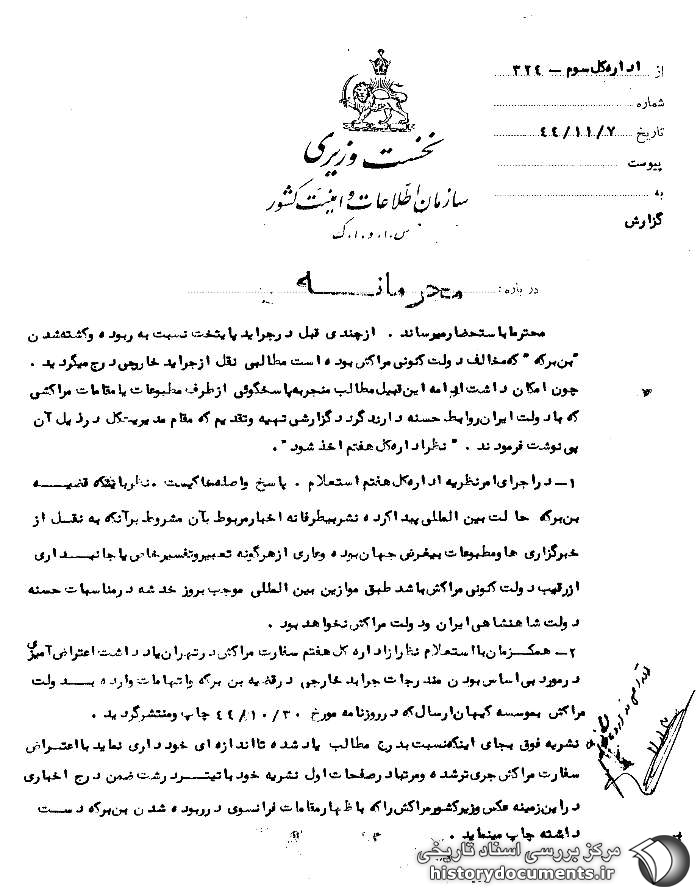 از اداره کل سوم - ۳۲۴
شماره
تاریخ ۴۴/۱۱/۷
پیوست
به
گزارش
نخست وزیری
سازمان اطلاعات و امنیت کشور
س.ا.و.ا.ک
درباره: محرمانه
محترما باستحضار میرساند . از چندی قبل در جراید پایتخت نسبت به ربوده و کشته شدن
"بن برکه" که مخالف دولت کنونی مراکش بوده است مطالبی نقل از جراید خارجی درج میگردید .
چون امکان داشت ادامه این قبیل مطالب منجر به پاسخگوئی از طرف مطبوعات یا مقامات مراکشی
که با دولت ایران روابط حسنه دارند گردد گزارشی تهیه و تقدیم که مقام مدیریت کل در ذیل آن
پی نوشت فرمودند . " نظر اداره کل هفتم اخذ شود ".
۱- در اجرای امر نظریه اداره کل هفتم استعلام . پاسخ واصله حاکیست . نظر باینکه قضیه
بن برکه حالت بین المللی پیدا کرده نشر بیطرفانه اخبار مربوط بآن مشروط بر آنکه به نقل از
خبرگزاری ها و مطبوعات بیغرض جهان بوده و عاری از هرگونه تعبیر و تفسیر خاص یا جانبداری
از رقیب دولت کنونی مراکش باشد طبق موازین بین المللی موجب بروز خدشه در مناسبات حسنه
دولت شاهنشاهی ایران و دولت مراکش نخواهد بود .
۲- همکزمان با استعلام نظر از اداره کل هفتم سفارت مراکش در تهران یادداشت اعتراض آمیزی
در مورد بی اساس بودن مندرجات جراید خارجی در قضیه بن برکه و اتهامات وارده بسد ولت
مراکش بموسسه کیهان ارسال که در روزنامه مورخ ۴۴/۱۰/۳۰ چاپ و منتشر گردید .
نشریه فوق بجای اینکه نسبت بدرج مطالب یاد شده تا اندازه ای خودداری نماید با اعتراض
سفارت مراکش جری تر شده و مرتبا در صفحات اول نشریه خود با تیتر درشت ضمن درج اخباری
در این زمینه عکس وزیر کشور مراکش را که با ظهار مقامات فرانسوی در ربوده شدن بن برکه دست
داشته چاپ مینماید .
مرکز بررسی اسناد تاریخی
historydocuments.ir